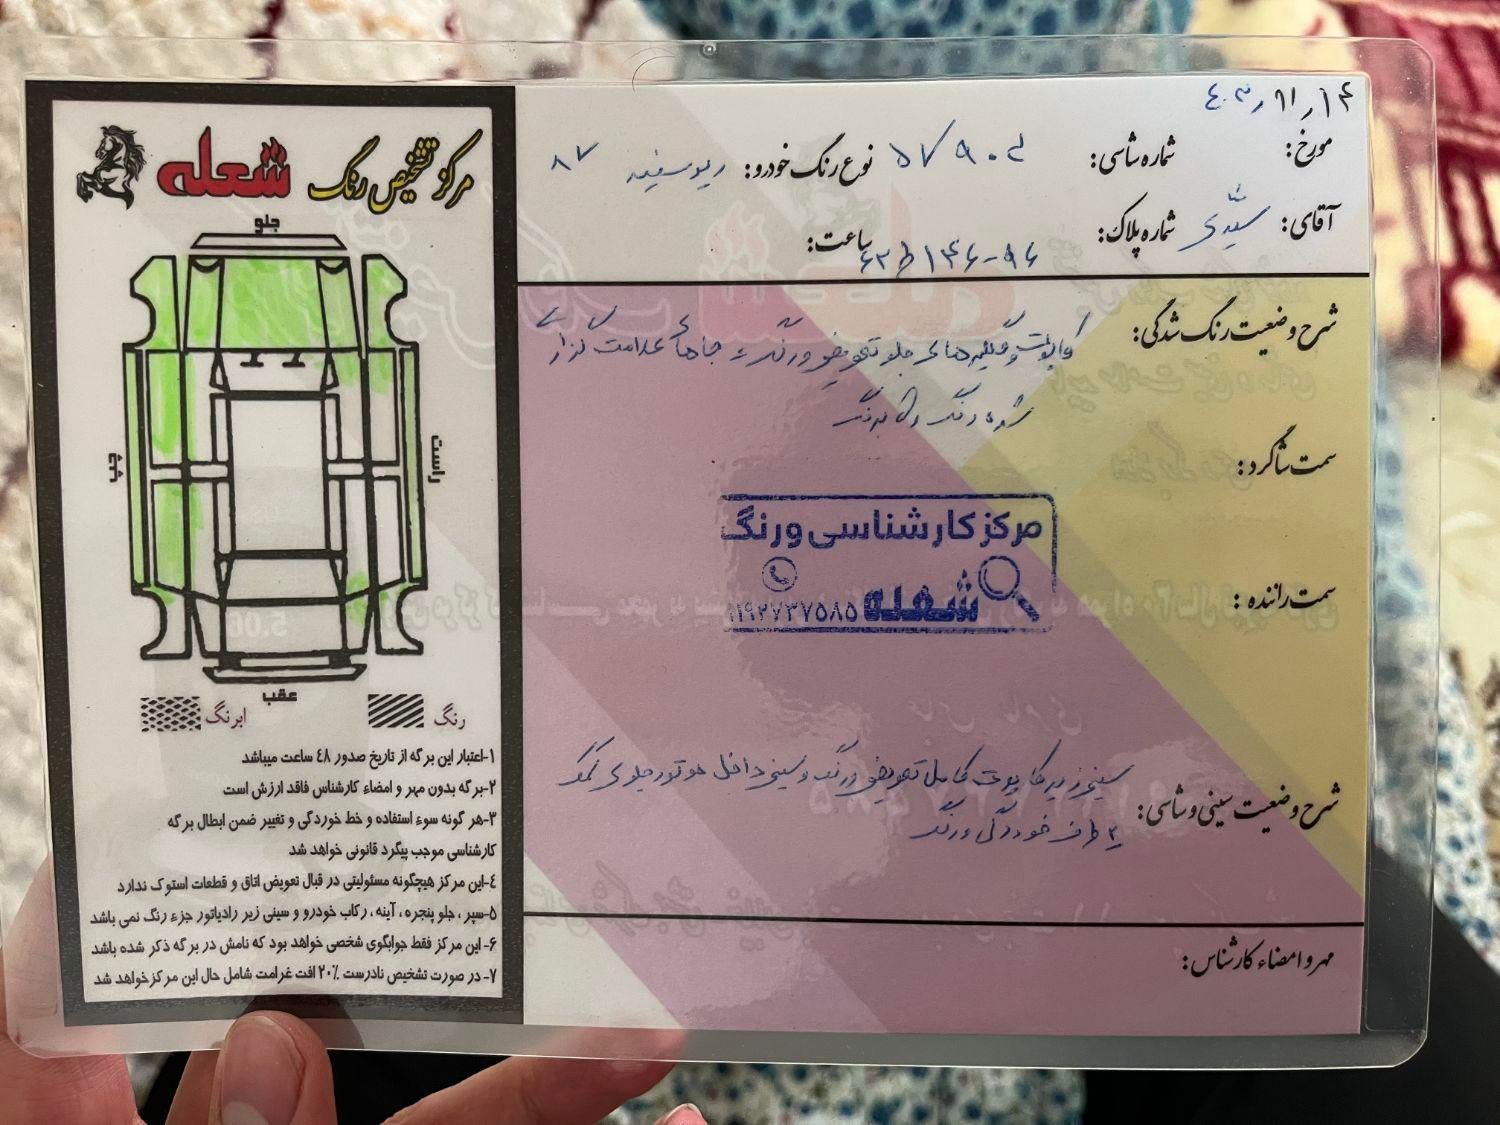 مرکز تشخیص رنگ شعله
جلو
چپ
راست
عقب
رنگ
ابرنگ
۱-اعتبار این برگه از تاریخ صدور ٤٨ ساعت میباشد
۲-برگه بدون مهر و امضاء کارشناس فاقد ارزش است
۳-هر گونه سوء استفاده و خط خوردگی و تغییر ضمن ابطال برگه
کارشناسی موجب پیگرد قانونی خواهد شد
٤-این مرکز هیچگونه مسئولیتی در قبال تعویض اتاق و قطعات استوک ندارد
۵-سپر ، جلو پنجره ، آینه ، رکاب خودرو و سینی زیر رادیاتور جزء رنگ نمی باشد
۶- این مرکز فقط جوابگوی شخصی خواهد بود که نامش در برگه ذکر شده باشد
۷- در صورت تشخیص نادرست ۲۰٪ افت غرامت شامل حال این مرکز خواهد شد
مورخ:
شماره شاسی:
نوع رنگ خودرو: ریو سفید ۸۷
آقای: سیدی
شماره پلاک:
ساعت:
شرح وضعیت رنگ شدگی: کاپوت و گلگیرهای جلو تعویض و رنگ جاهای علامت گذاری
شده رنگ
سمت شاگرد:
سمت راننده :
مرکز کارشناسی و رنگ
شعله
شرح وضعیت سینی و شاسی: سینی زیر کاپوت کامل تعویض و رنگ و سینی داخل موتور جلوی کمک
۲ طرف خوردگی و رنگ
مهر و امضاء کارشناس: